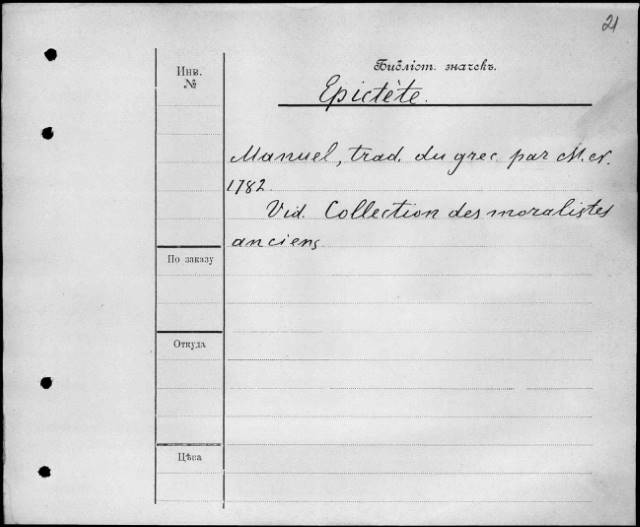 21
Инв.
№
Библіот. значекъ.
Epictète.
Manuel, trad. du grec par M. N.
1782.
Vid. Collection des moralistes
anciens
По заказу
Откуда
Цѣна